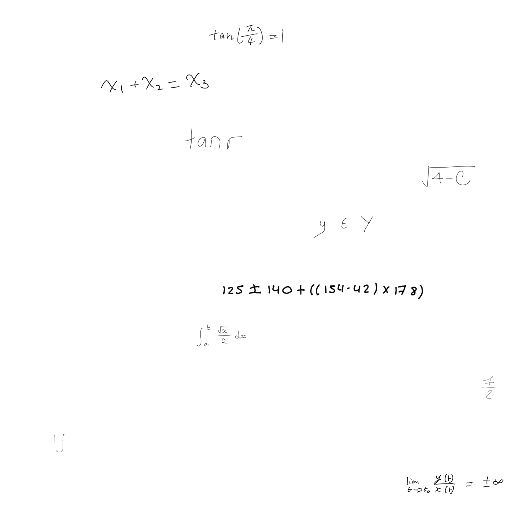 tan(π/4) = 1
x₁ + x₂ = x₃
tan r
√(4 - C)
y ∈ Y
125 ± 140 + ((154 - 42) × 178)
∫ₐᵇ √x/2 dx
7/2
U
lim_{t→t₀} y(t)/x(t) = ±∞